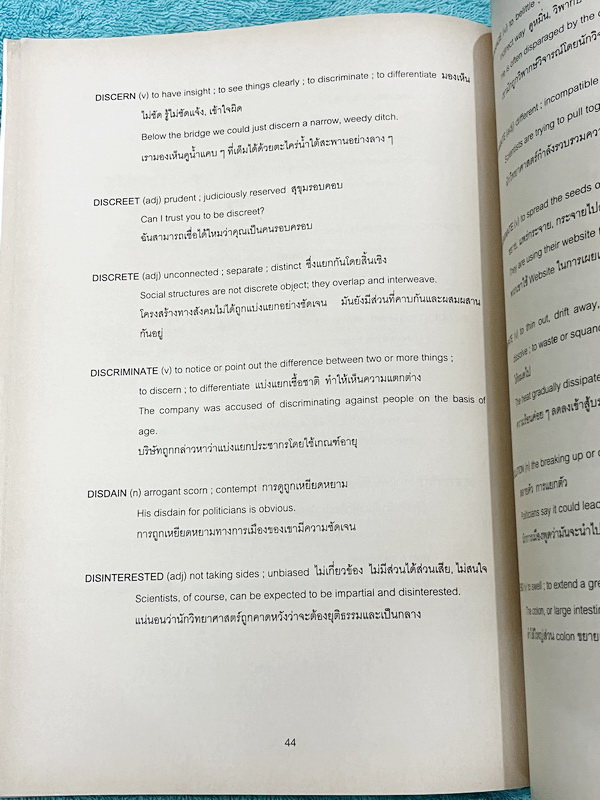 DISCERN (v) to have insight ; to see things clearly ; to discriminate ; to differentiate มองเห็น
ไม่ชัด รู้ไม่ชัดแจ้ง, เข้าใจผิด
Below the bridge we could just discern a narrow, weedy ditch.
เรามองเห็นคูน้ำแคบ ๆ ที่เต็มได้ด้วยตะไคร่น้ำใต้สะพานอย่างลาง ๆ
DISCREET (adj) prudent ; judiciously reserved สุขุมรอบคอบ
Can I trust you to be discreet?
ฉันสามารถเชื่อได้ไหมว่าคุณเป็นคนรอบครอบ
DISCRETE (adj) unconnected ; separate ; distinct ซึ่งแยกกันโดยสิ้นเชิง
Social structures are not discrete object; they overlap and interweave.
โครงสร้างทางสังคมไม่ได้ถูกแบ่งแยกอย่างชัดเจน มันยังมีส่วนที่คาบกันและผสมผสาน
กันอยู่
DISCRIMINATE (v) to notice or point out the difference between two or more things ;
to discern ; to differentiate แบ่งแยกเชื้อชาติ ทำให้เห็นความแตกต่าง
The company was accused of discriminating against people on the basis of
age.
บริษัทถูกกล่าวหาว่าแบ่งแยกประชากรโดยใช้เกณฑ์อายุ
DISDAIN (n) arrogant scorn ; contempt การดูถูกเหยียดหยาม
His disdain for politicians is obvious.
การดูถูกเหยียดหยามทางการเมืองของเขามีความชัดเจน
DISINTERESTED (adj) not taking sides ; unbiased ไม่เกี่ยวข้อง ไม่มีส่วนได้ส่วนเสีย, ไม่สนใจ
Scientists, of course, can be expected to be impartial and disinterested.
แน่นอนว่านักวิทยาศาสตร์ถูกคาดหวังว่าจะต้องยุติธรรมและเป็นกลาง
44
(v) to belittle ;
indirect way ดูหมิ่น, วิพากษ์
He is often disparaged by the
ถูกวิพากษ์วิจารณ์โดยนักวิจ
different ; incompatible
Scientists are trying to pull tog
นักวิทยาศาสตร์กำลังรวบรวมความ
(v) to spread the seeds o
แพร่กระจาย, กระจายไป
They are using their website
ใช้ Website ในการเผยแ
(v) to thin out, drift away,
dissolve ; to waste or squand
The heat gradually dissipate
ความร้อนค่อย ๆ ลดลงเข้าสู่
(n) the breaking up or
การแยกตัว
Politicians say it could lead
นักการเมืองพูดว่ามันจะนำไป
(v) to swell ; to extend a gre
The colon, or large intestin
ลำไส้ใหญ่ส่วน colon ขยาย